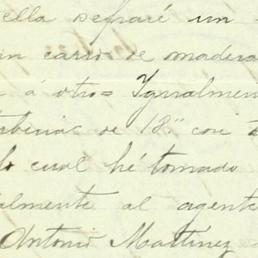 ella separé un
un carro de madera
á otro = Ygualmen
de 18" con
lo cual hé tomado
almente al agente
Antonio Martínez